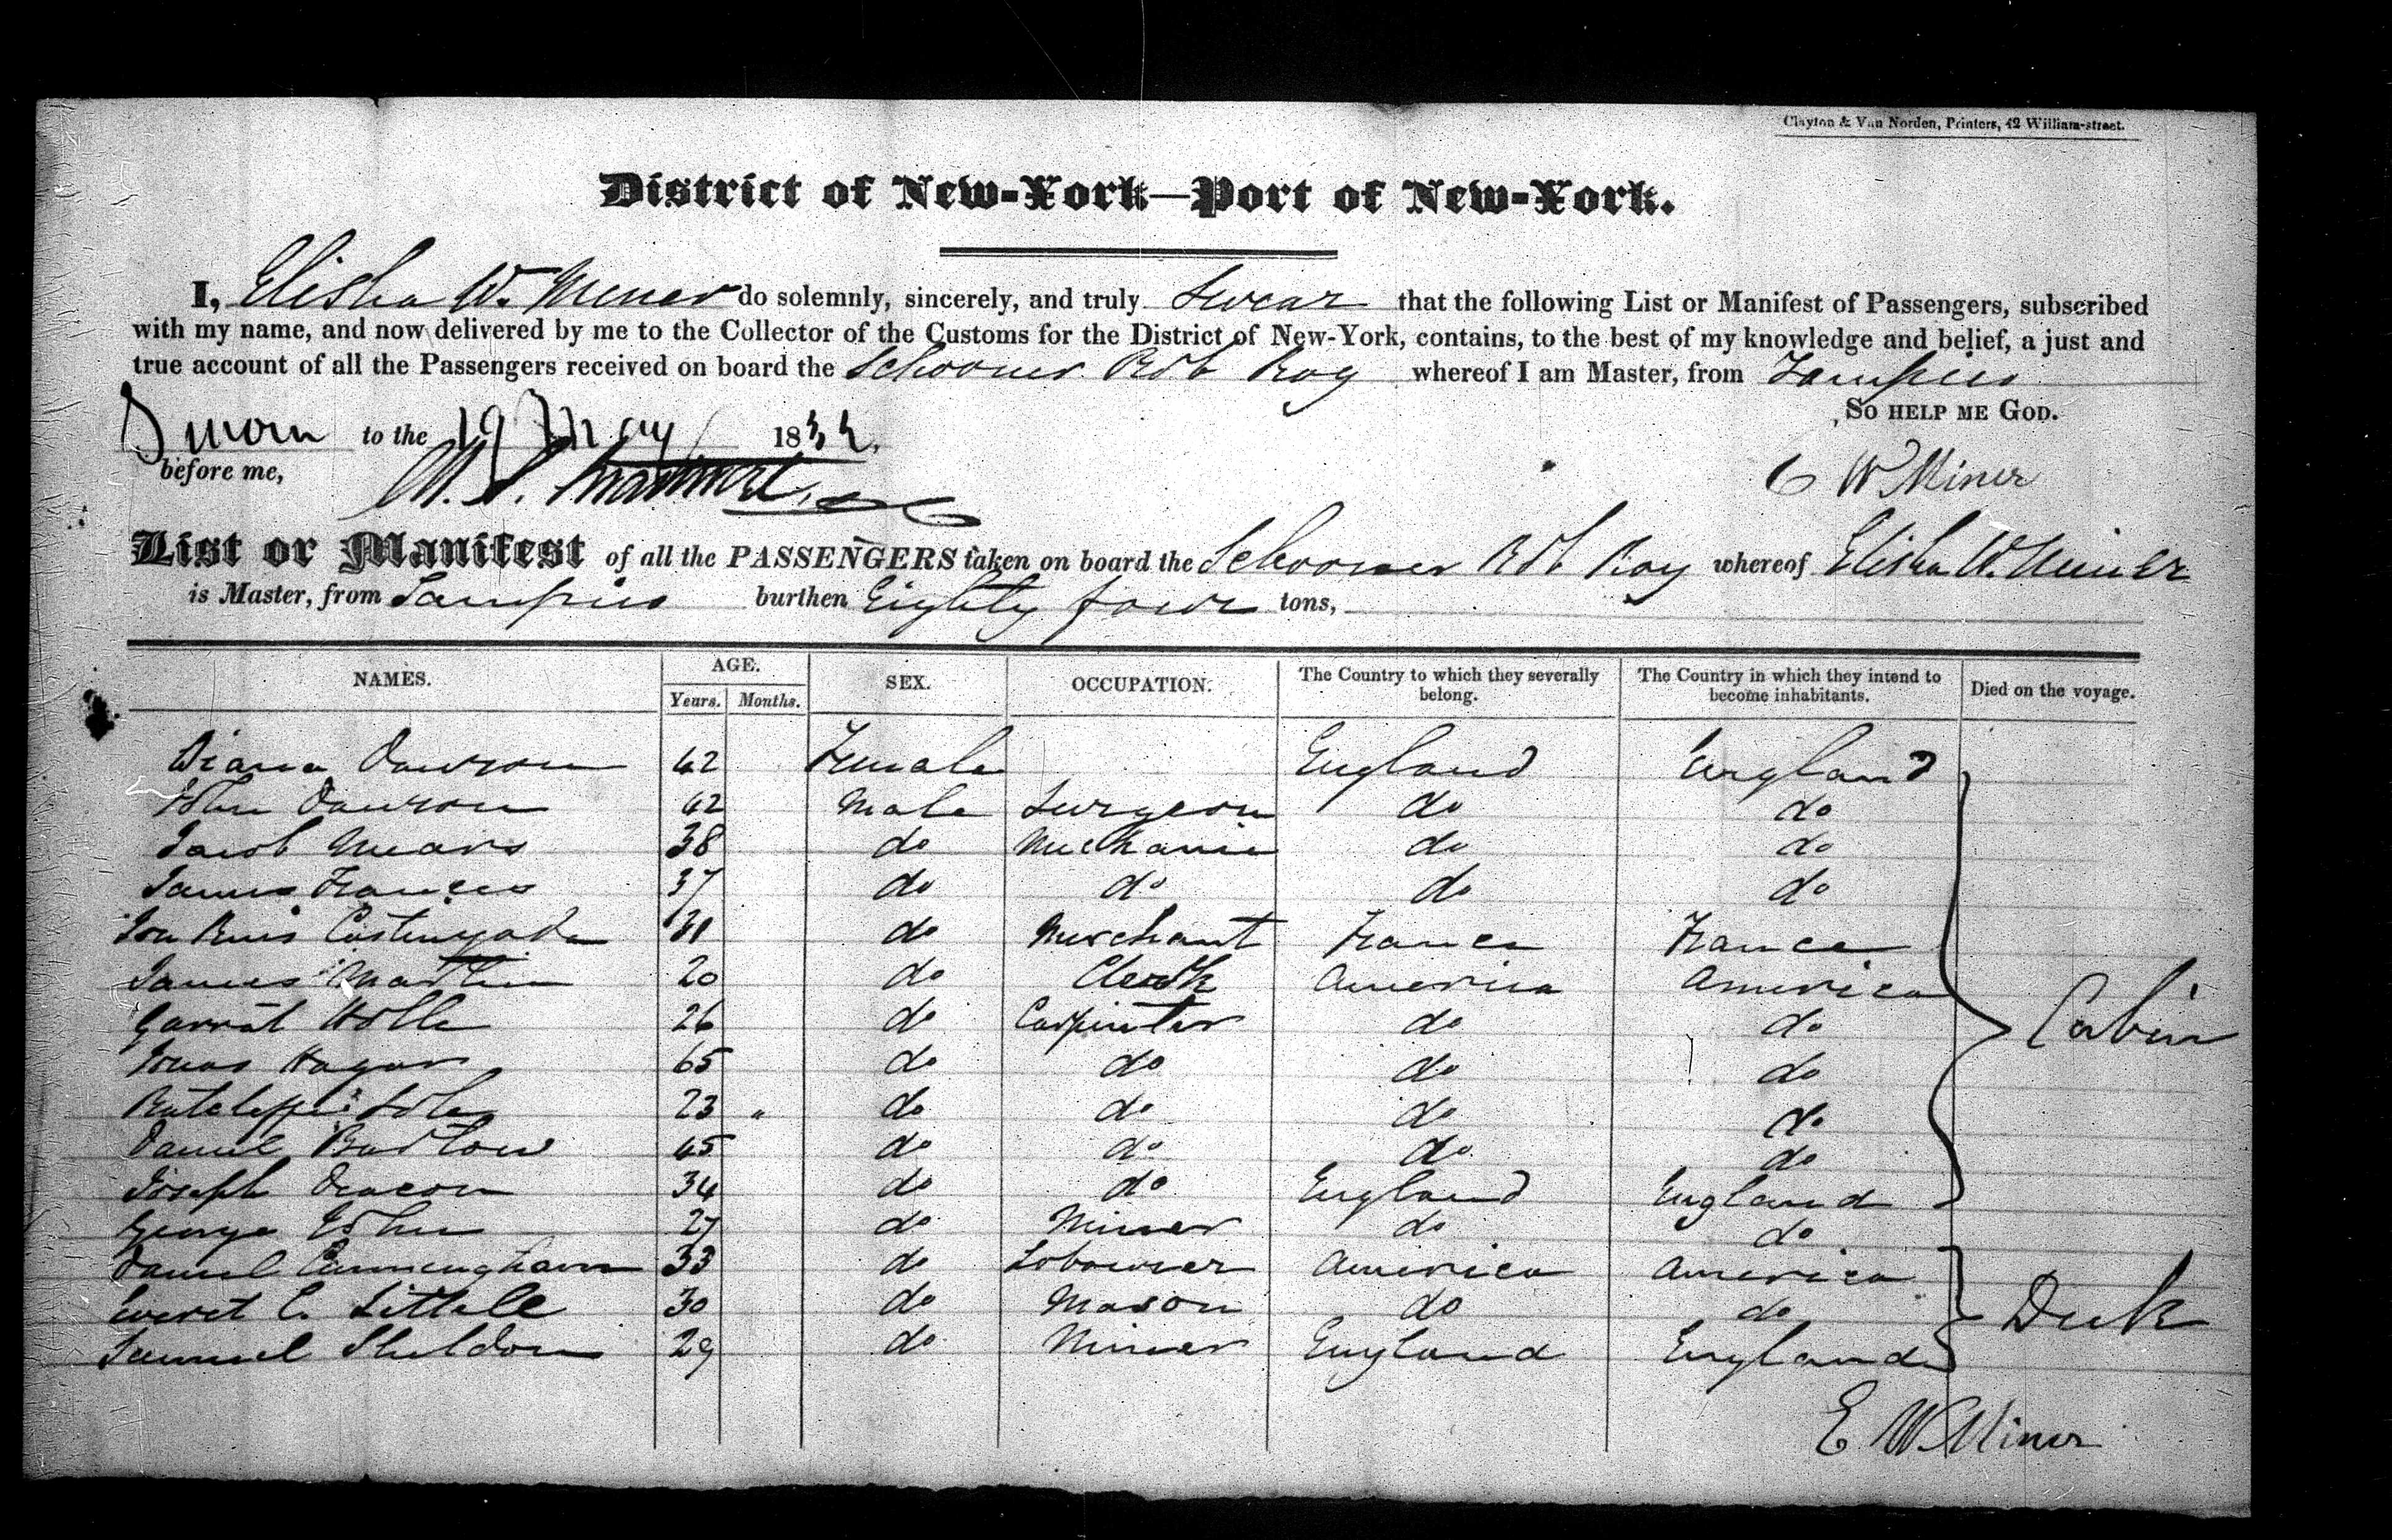 Clayton & Van Norden, Printers, 42 William-street.
District of New-York—Port of New-York.
I, Elisha W. Miner do solemnly, sincerely, and truly Swear that the following List or Manifest of Passengers, subscribed
with my name, and now delivered by me to the Collector of the Customs for the District of New-York, contains, to the best of my knowledge and belief, a just and
true account of all the Passengers received on board the Schooner Rob Roy whereof I am Master, from Tampico
SO HELP ME GOD.
Sworn to the 19 May 18
before me,
E W Miner
List or Manifest of all the PASSENGERS taken on board the Schooner Rob Roy whereof Elisha W. Miner
is Master, from Tampico burthen Eighty four tons,
NAMES. AGE. SEX. OCCUPATION. The Country to which they severally belong. The Country in which they intend to become inhabitants. Died on the voyage.
Years. Months.
Diana Dawson 42 Female England England
John Dawson 42 Male Surgeon do do
Jacob Mears 38 do Mechanic do do
James Francis 37 do do do do
31 do Merchant France France
James Martin 20 do Clerk America America
Garrat 26 do Carpenter do do
65 do do do do
23 " do do do do
Daniel 45 do do do do
Joseph Deacon 34 do do England England
George John 27 do Miner do do
Daniel Cunningham 33 do Labourer America America
Everet C. Littele 30 do Mason do do
Samuel Sheldon 29 do Miner England England
Cabin
Deck
E W Miner